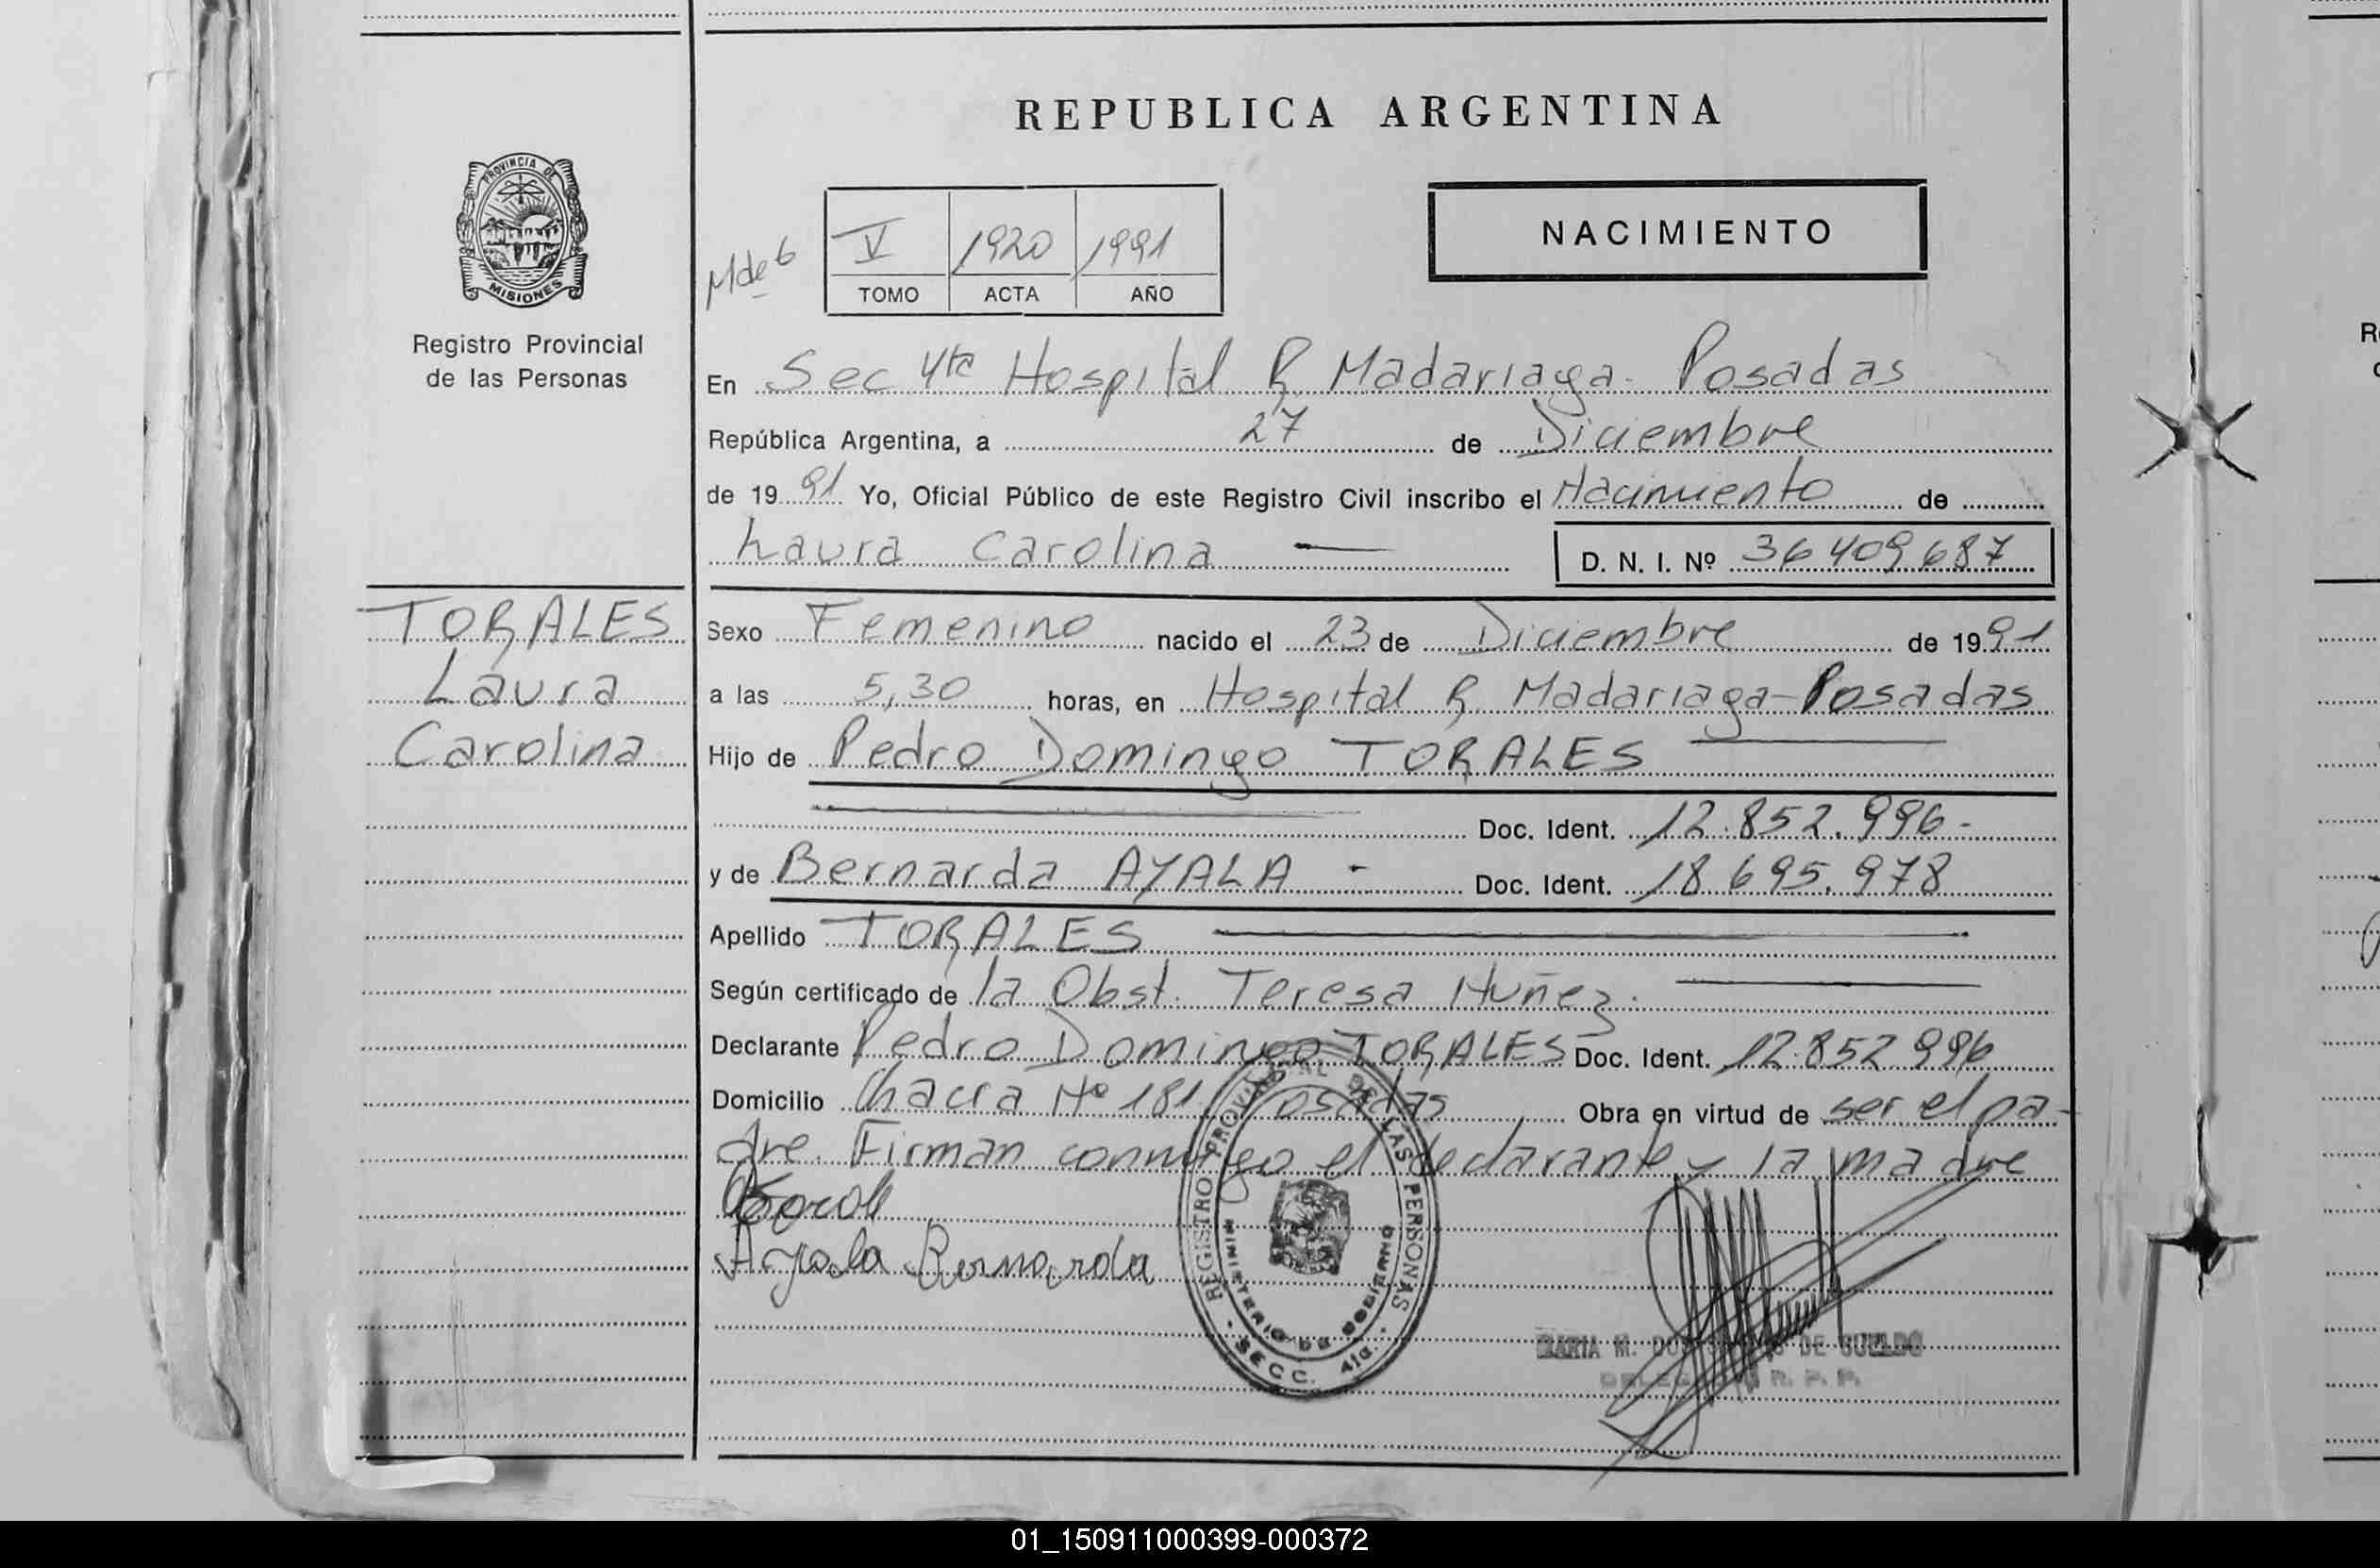 REPUBLICA ARGENTINA
PROVINCIA DE
MISIONES
Registro Provincial
de las Personas
NACIMIENTO
V 1920 1991
TOMO ACTA AÑO
En Sec 4ta Hospital R Madariaga - Posadas
República Argentina, a 27 de Diciembre
de 1991 Yo, Oficial Público de este Registro Civil inscribo el Nacimiento de
Laura Carolina — D. N. I. Nº 36409687
TORALES
Laura
Carolina
Sexo Femenino nacido el 23 de Diciembre de 1991
a las 5,30 horas, en Hospital R Madariaga - Posadas
Hijo de Pedro Domingo TORALES
Doc. Ident. 12.852.996-
y de Bernarda AYALA - Doc. Ident. 18.695.978
Apellido TORALES
Según certificado de la Obst. Teresa Nuñez.
Declarante Pedro Domingo TORALES Doc. Ident. 12.852.996
Domicilio Chacra Nº 181 Posadas Obra en virtud de ser el pa-
dre. Firman conmigo el declarante y la madre
Ayala Bernarda
REGISTRO PROVINCIAL DE LAS PERSONAS
MINISTERIO DE GOBIERNO
SECC. 4ta.
MARIA M. DE SUELDO
R. P. P.
01_150911000399-000372